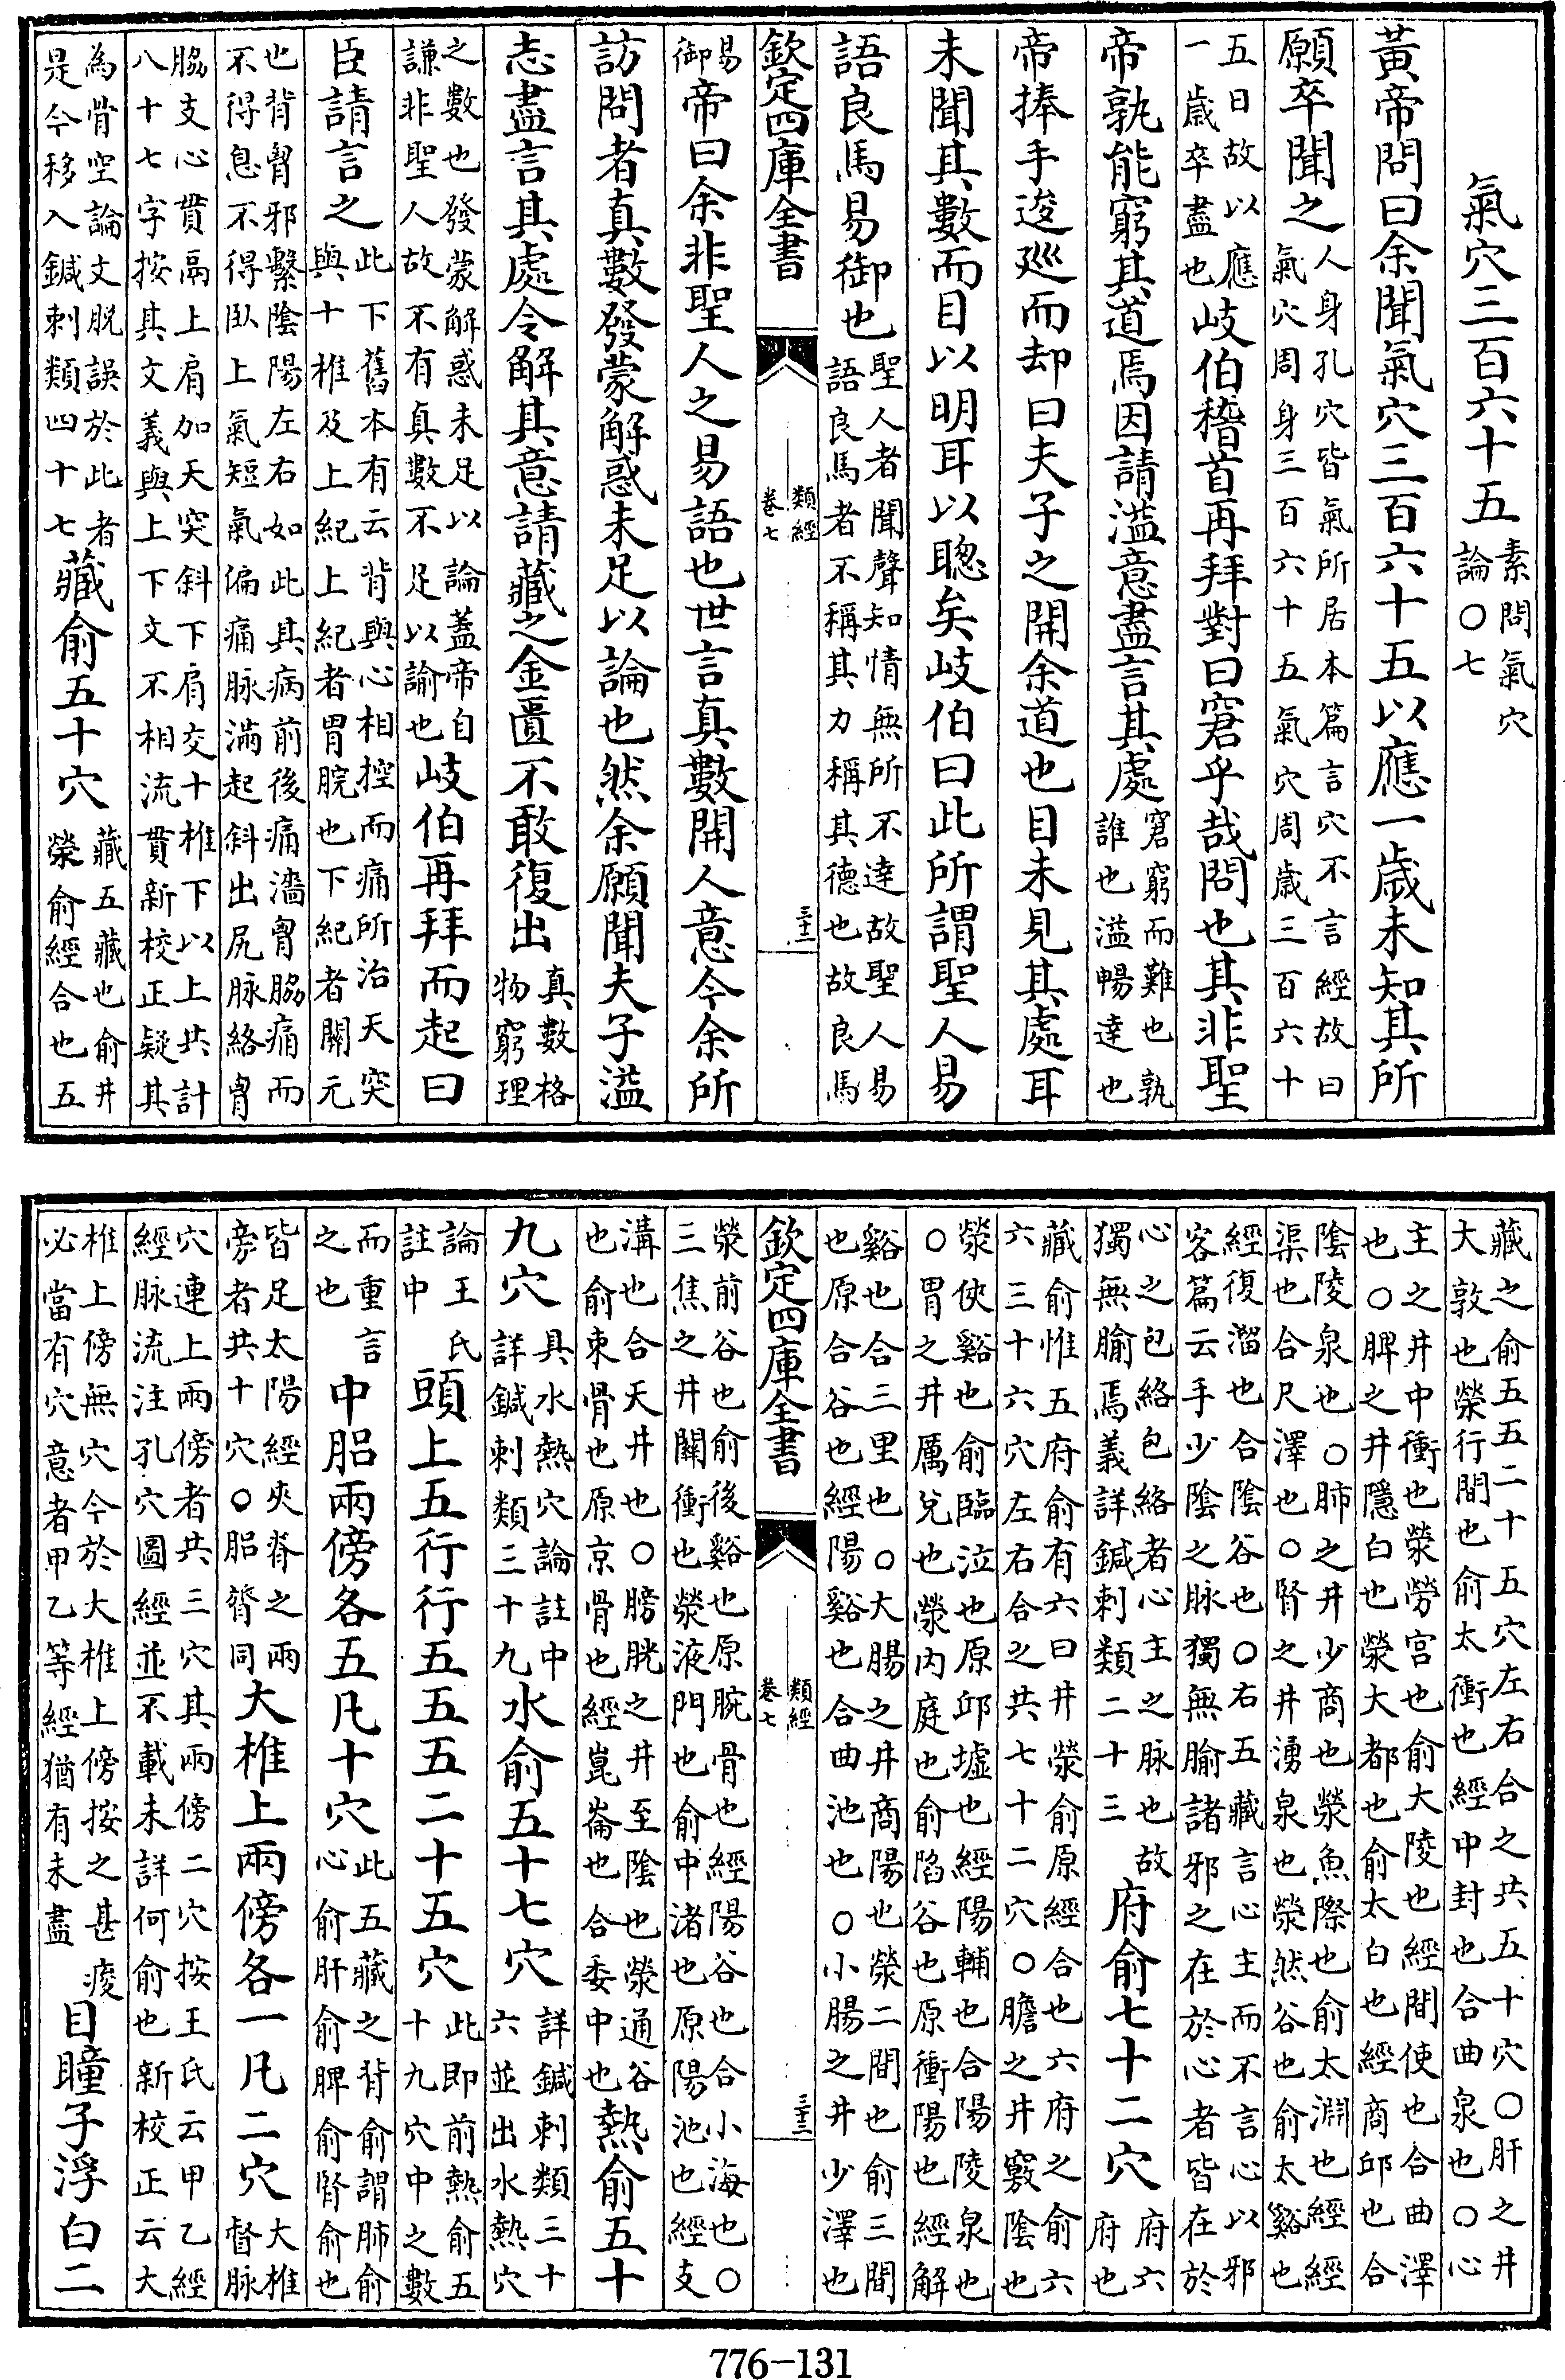 氣穴三百六十五素問氣穴論○七
黃帝問曰余聞氣穴三百六十五以應一歲未知其所
願卒聞之人身孔穴皆氣所居本篇言穴不言經故曰氣穴周身三百六十五氣穴周歲三百六十
五日故以應一歲卒盡也岐伯稽首再拜對曰窘乎哉問也其非聖
帝孰能窮其道焉因請溢意盡言其處窘窮而難也孰誰也溢暢達也
帝捧手逡巡而却曰夫子之開余道也目未見其處耳
未聞其數而目以明耳以聰矣岐伯曰此所謂聖人易
語良馬易御也聖人者聞聲知情無所不達故聖人易語良馬者不稱其力稱其德也故良馬
欽定四庫全書 類經卷七 三十二
易御帝曰余非聖人之易語也世言真數開人意今余所
訪問者真數發蒙解惑未足以論也然余願聞夫子溢
志盡言其處令解其意請藏之金匱不敢復出真數格物窮理
之數也發蒙解惑未足以論蓋帝自謙非聖人故不有真數不足以諭也岐伯再拜而起曰
臣請言之此下舊本有云背與心相控而痛所治天突與十椎及上紀上紀者胃脘也下紀者關元
也背胷邪繫陰陽左右如此其病前後痛濇胷脇痛而不得息不得臥上氣短氣偏痛脉滿起斜出尻脉絡胷
脇支心貫鬲上肩加天突斜下肩交十椎下以上共計八十七字按其文義與上下文不相流貫新校正疑其
為骨空論文脫誤於此者是今移入鍼刺類四十七藏俞五十穴藏五藏也俞井滎俞經合也五
藏之俞五五二十五穴左右合之共五十穴○肝之井大敦也滎行間也俞太衝也經中封也合曲泉也○心
主之井中衝也滎勞宮也俞大陵也經間使也合曲澤也○脾之井隱白也滎大都也俞太白也經商邱也合
陰陵泉也○肺之井少商也滎魚際也俞太淵也經經渠也合尺澤也○腎之井湧泉也滎然谷也俞太谿也
經復溜也合陰谷也○右五藏言心主而不言心以邪客篇云手少陰之脉獨無腧諸邪之在於心者皆在於
心之包絡包絡者心主之脉也故獨無腧焉義詳鍼刺類二十三府俞七十二穴府六府也
藏俞惟五府俞有六曰井滎俞原經合也六府之俞六六三十六穴左右合之共七十二穴○膽之井竅陰也
滎俠谿也俞臨泣也原邱墟也經陽輔也合陽陵泉也○胃之井厲兌也滎內庭也俞陷谷也原衝陽也經解
谿也合三里也○大腸之井商陽也滎二間也俞三間也原合谷也經陽谿也合曲池也○小腸之井少澤也
欽定四庫全書 類經卷七 三十三
滎前谷也俞後谿也原腕骨也經陽谷也合小海也○三焦之井關衝也滎液門也俞中渚也原陽池也經支
溝也合天井也○膀胱之井至陰也滎通谷也俞束骨也原京骨也經崑崙也合委中也熱俞五十
九穴具水熱穴論註中詳鍼刺類三十九水俞五十七穴詳鍼刺類三十六並出水熱穴
論王氏註中頭上五行行五五五二十五穴此即前熱俞五十九穴中之數
而重言之也中䏚兩傍各五凡十穴此五藏之背俞謂肺俞心俞肝俞脾俞腎俞也
皆足太陽經夾脊之兩旁者共十穴○䏚膂同大椎上兩傍各一凡二穴大椎督脉
穴連上兩傍者共三穴其兩傍二穴按王氏云甲乙經經脉流注孔穴圖經並不載未詳何俞也新校正云大
椎上傍無穴今於大椎上傍按之甚痠必當有穴意者甲乙等經猶有未盡目瞳子浮白二
776-131